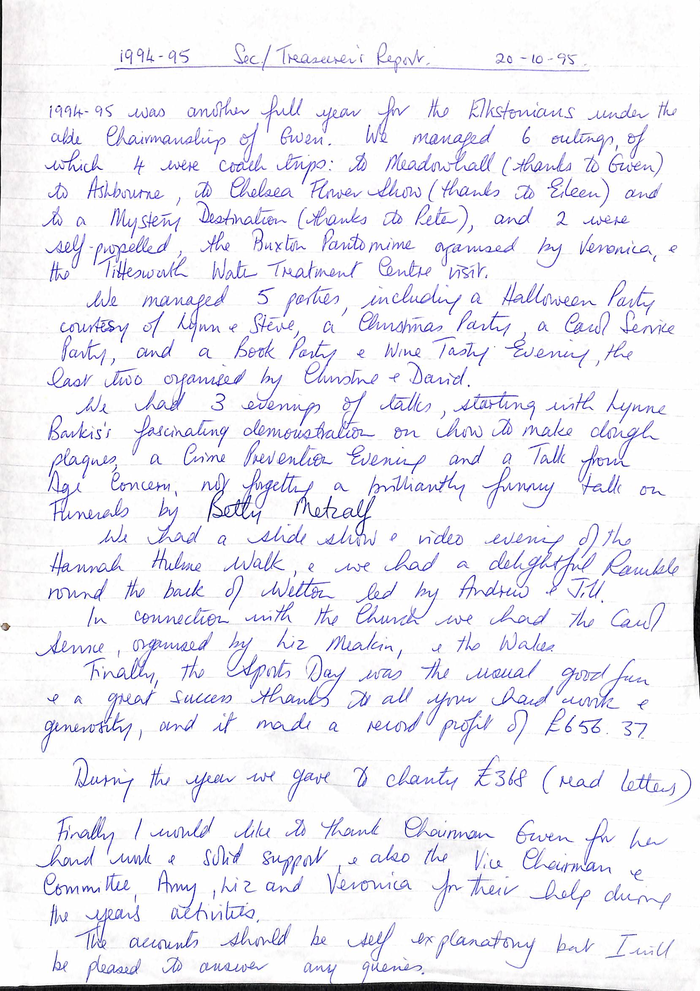 1994-95 Sec/Treasurer's Report. 20-10-95.
1994-95 was another full year for the Elkstonians under the
able Chairmanship of Gwen. We managed 6 outings, of
which 4 were coach trips: to Meadowhall (thanks to Gwen)
to Ashbourne, to Chelsea Flower Show (thanks to Eileen) and
to a Mystery Destination (thanks to Peter), and 2 were
self-propelled, the Buxton Pantomime organised by Veronica, e
the Tittesworth Water Treatment Centre visit.
We managed 5 parties, including a Halloween Party
courtesy of Lynn e Steve, a Christmas Party, a Carol Service
Party, and a Book Party e Wine Tasty Evening, the
last two organised by Christine e David.
We had 3 evenings of talks, starting with Lynne
Barkis's fascinating demonstration on how to make dough
plaques, a Crime Prevention Evening and a Talk from
Age Concern, not forgetting a brilliantly funny talk on
Funerals by Betty Metcalf
We had a slide show e video evening of the
Hannah Hulme Walk, e we had a delightful Ramble
round the back of Wetton led by Andrew e Jill.
In connection with the Church we had the Carol
Service, organised by Liz Meakin, e the Wakes.
Finally, the Sports Day was the usual good fun
e a great success thanks to all your hard work e
generosity, and it made a record profit of £656.37.
During the year we gave to charity £368 (read letters)
Finally I would like to thank Chairman Gwen for her
hard work e solid support, e also the Vice Chairman e
Committee, Amy, Liz and Veronica for their help during
the year's activities.
The accounts should be self explanatory but I will
be pleased to answer any queries.